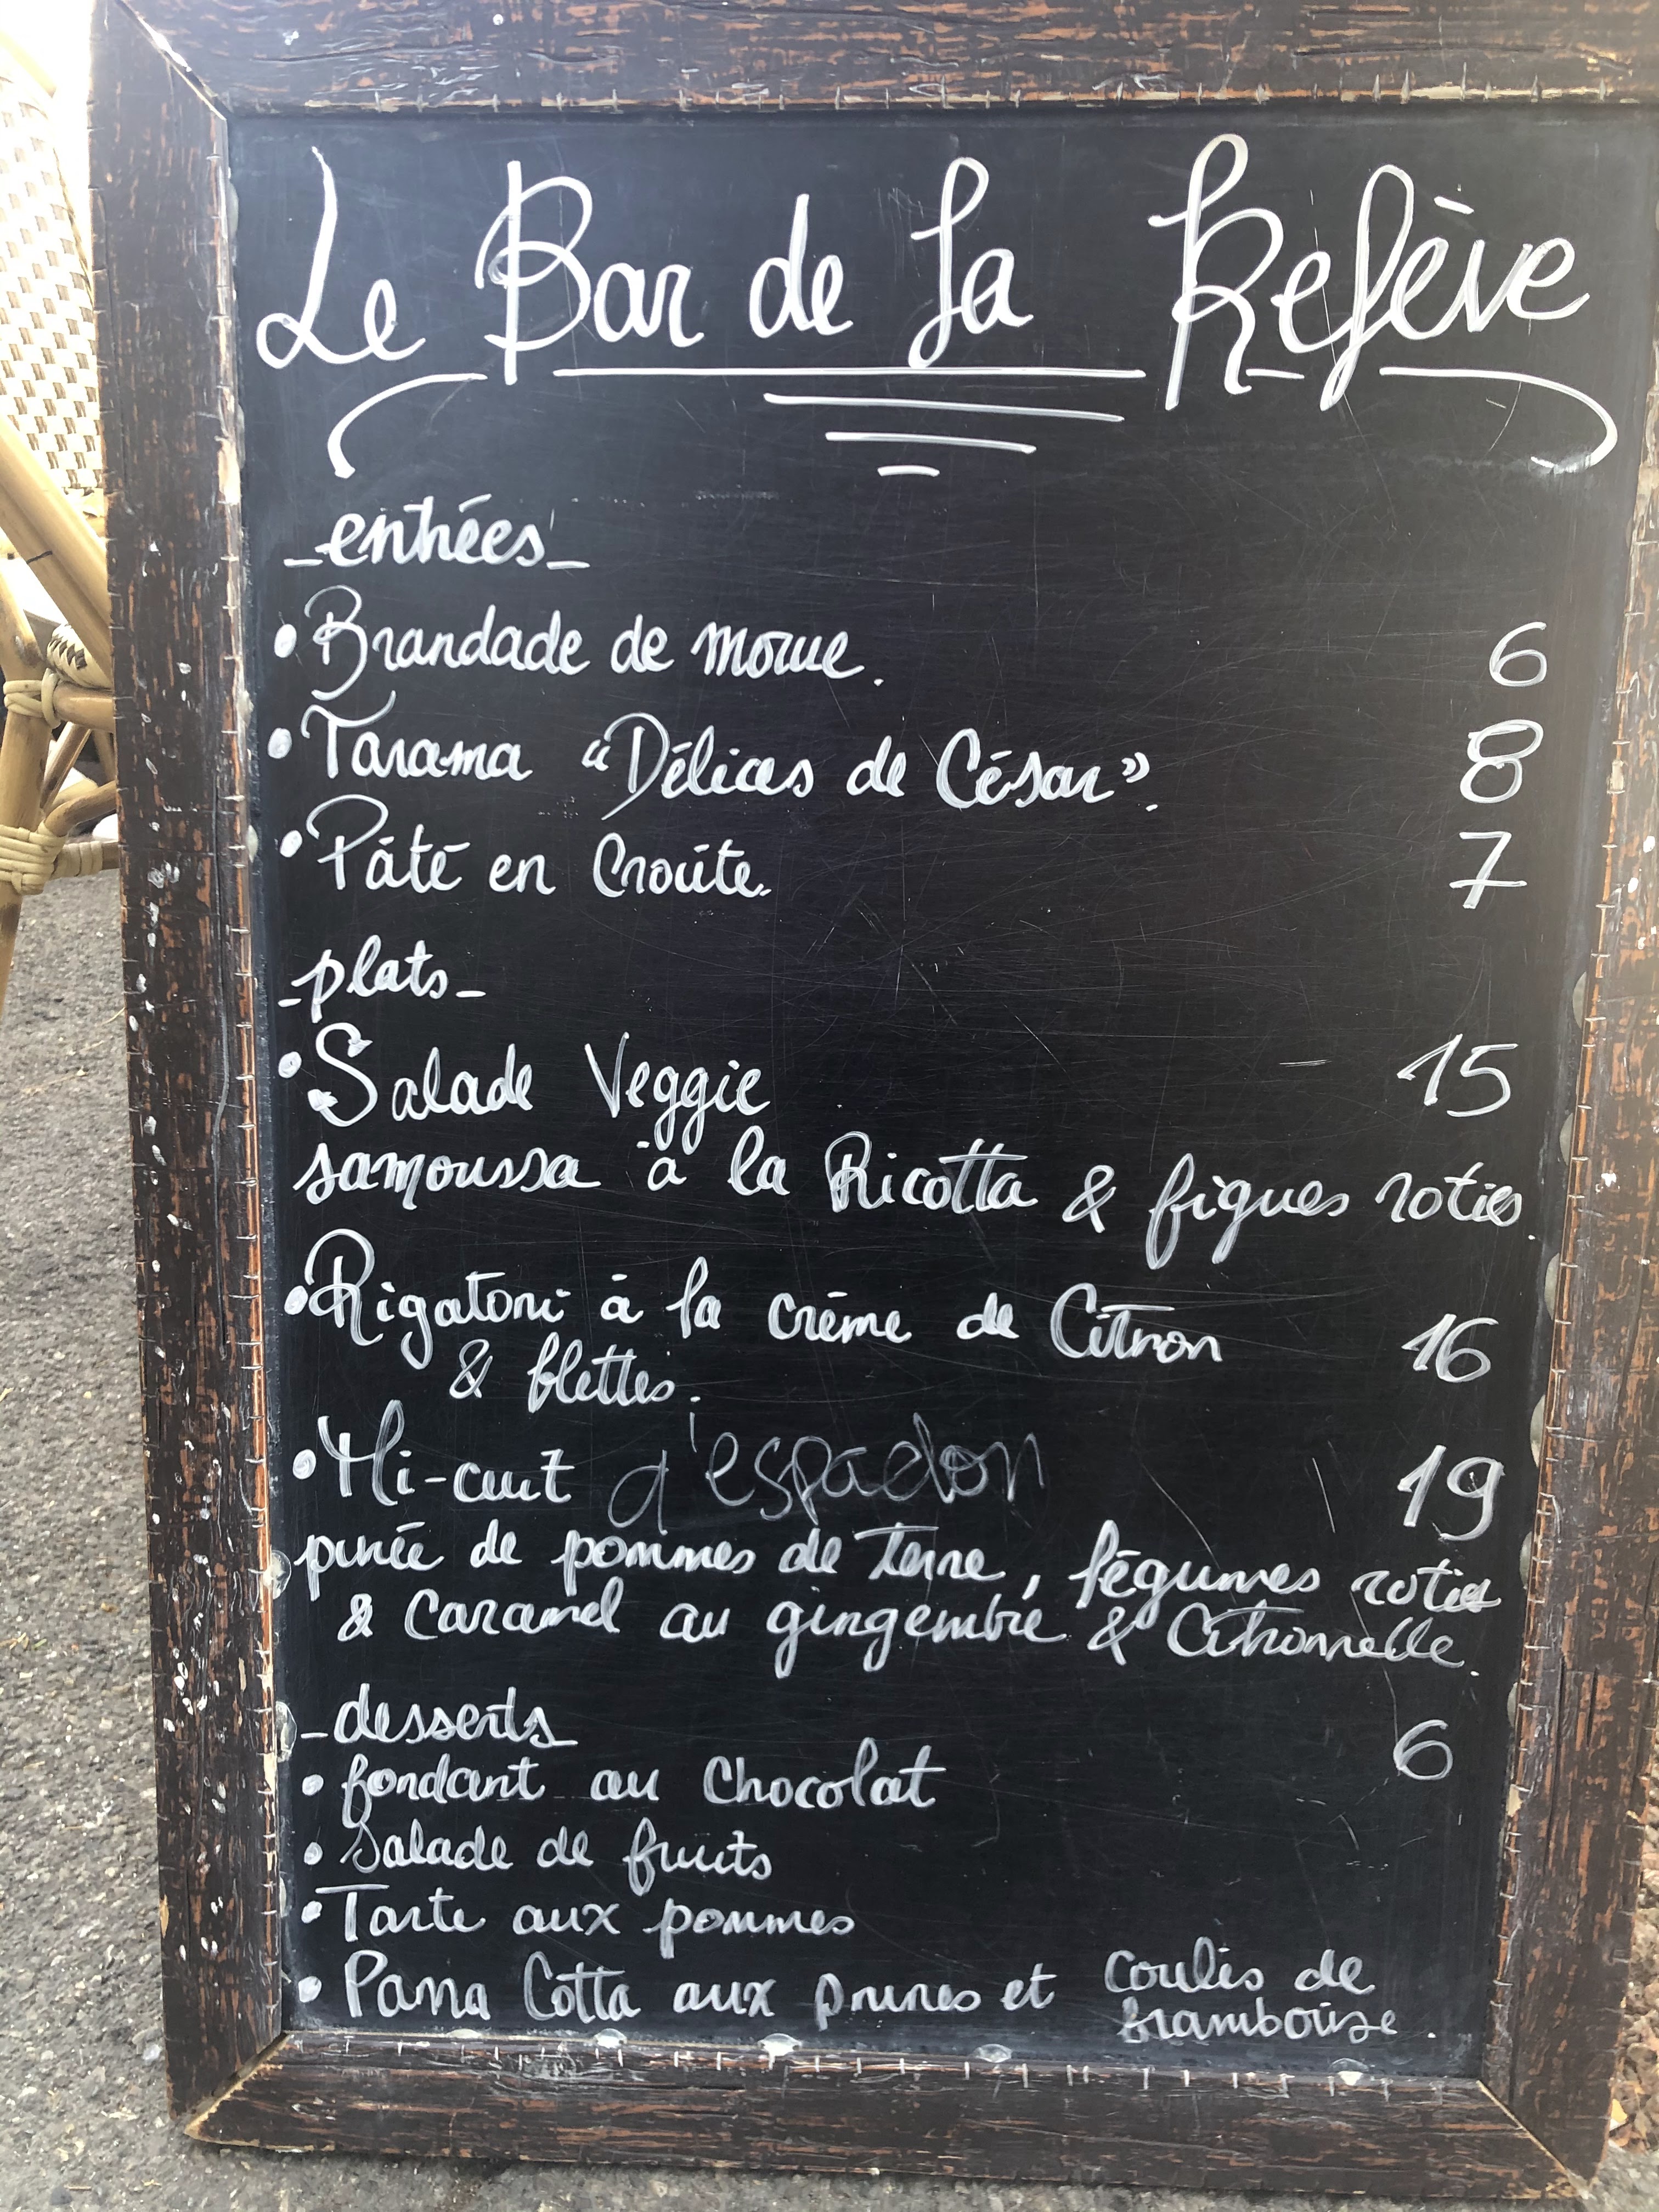 Le Bar de la Relève
- entrées -
• Brandade de morue. 6
• Tarama “Délices de César”. 8
• Pâté en Croûte. 7
- plats -
• Salade Veggie 15
samoussa à la Ricotta & figues roties
• Rigatoni à la crème de Citron 16
& blettes.
• Mi-cuit d'espadon 19
purée de pommes de terre, légumes roties
& Caramel au gingembre & Citronnelle.
- desserts 6
• fondant au Chocolat
• Salade de fruits
• Tarte aux pommes
• Panna Cotta aux prunes et coulis de
framboise.